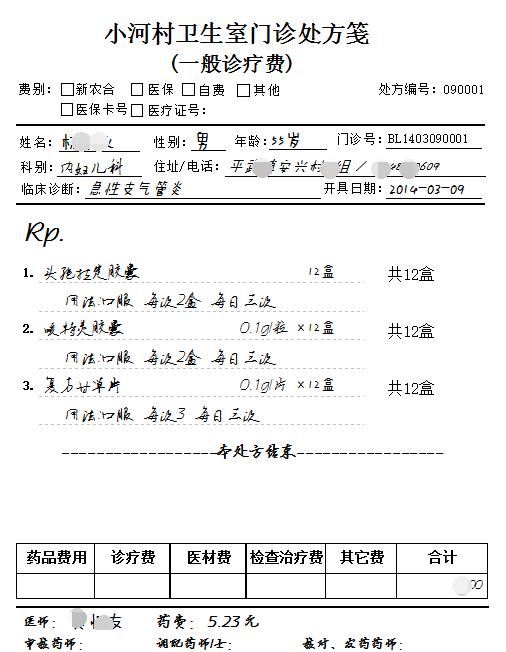 小河村卫生室门诊处方笺
(一般诊疗费)
费别: 新农合 医保 自费 其他 处方编号: 090001
医保卡号 医疗证号:
姓名: 性别: 男 年龄: 55岁 门诊号: BL1403090001
科别: 内妇儿科 住址/电话: 平武 安兴村 组 / 0609
临床诊断: 急性支气管炎 开具日期: 2014-03-09
Rp.
1. 头孢拉定胶囊 12盒 共12盒
用法:口服 每次2盒 每日三次
2. 咳特灵胶囊 0.1g/粒 ×12盒 共12盒
用法:口服 每次2盒 每日三次
3. 复方甘草片 0.1g/片 ×12盒 共12盒
用法:口服 每次3 每日三次
--------------------本处方结束--------------------
药品费用 诊疗费 医材费 检查治疗费 其它费 合计
00
医师: 友 药费: 5.23元
审核药师: 调配药师/士: 核对、发药药师: